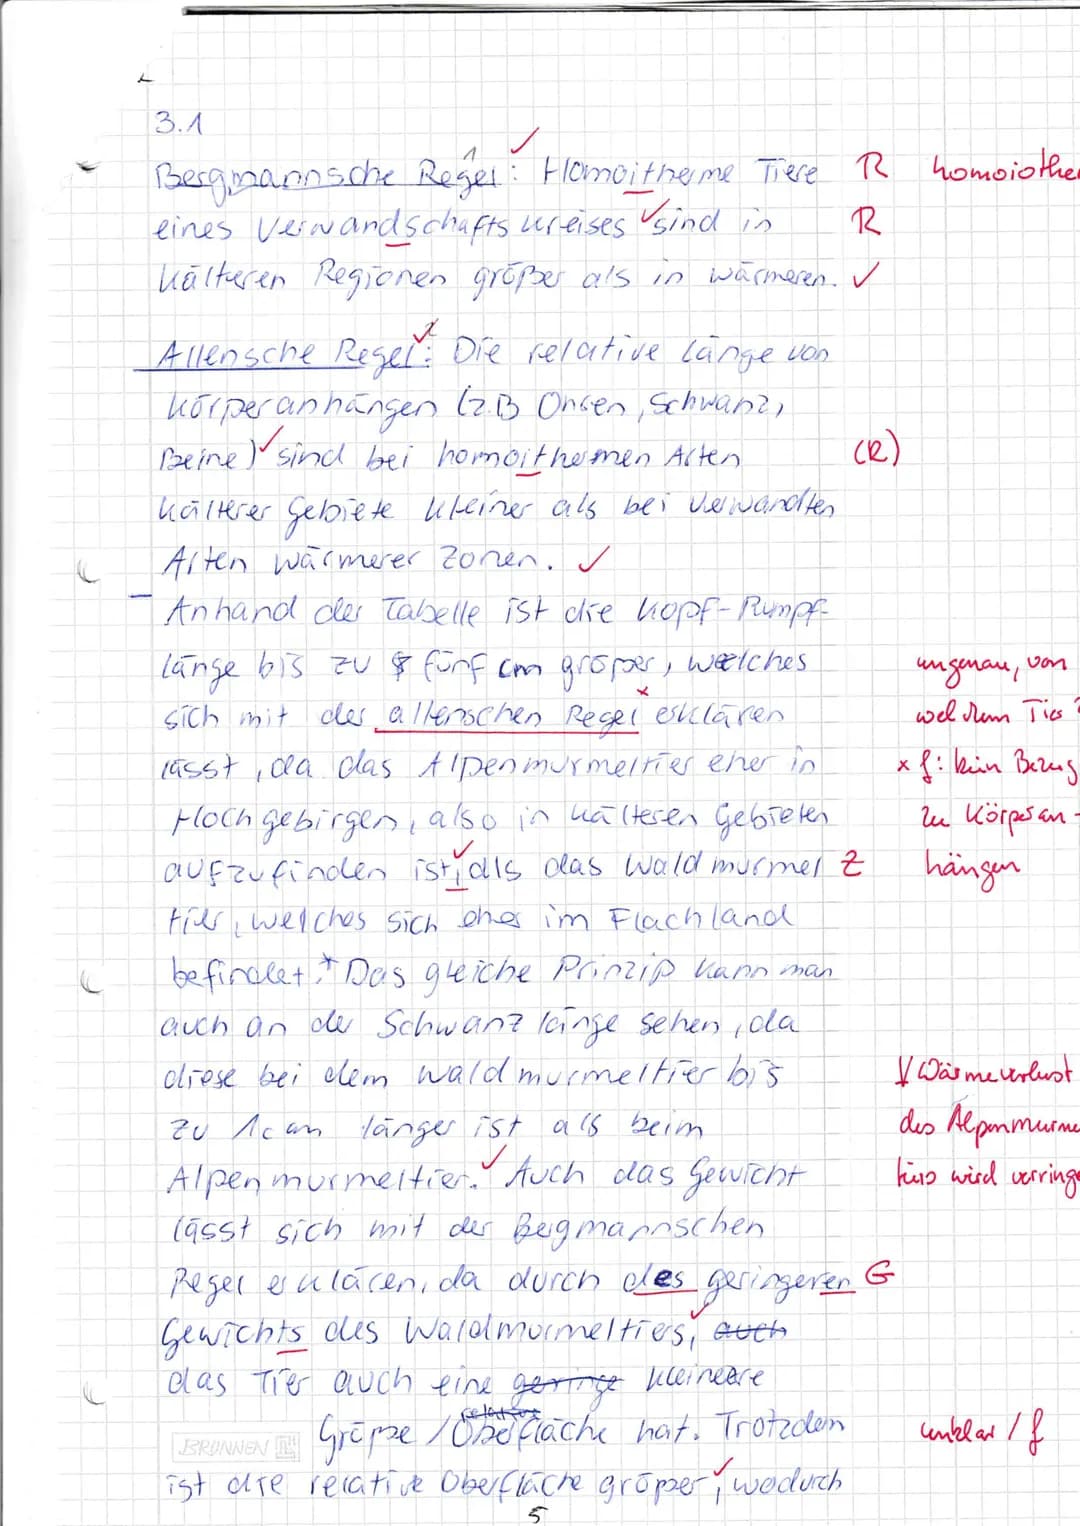 3.1
Bergmannsche Regel: Homoitherme Tiere R homoiother
eines Verwandschaftskreises sind in R
kälteren Regionen größer als in wärmeren.
Allensche Regel: Die relative Länge von
Körperanhängen (z.B Ohren, Schwanz,
Beine) sind bei homoithermen Arten (R)
kälterer Gebiete kleiner als bei verwandten
Arten wärmerer Zonen.
Anhand der Tabelle ist die Kopf-Rumpf-
länge bis zu fünf cm größer, welches ungenau, von
sich mit der allenschen Regel erklären welchem Tier?
lässt, da das Alpenmurmeltier eher in x f: kein Bezug
Hochgebirgen, also in kälteren Gebieten zu Körperan-
aufzufinden ist, als das Waldmurmel Z hängen
tier, welches sich eher im Flachland
befindet.* Das gleiche Prinzip kann man
auch an der Schwanzlänge sehen, da
diese bei dem Waldmurmeltier bis Wärmeverlust
zu 1cm länger ist als beim des Alpenmurme
Alpenmurmeltier. Auch das Gewicht tiers wird verringe
lässt sich mit der Bergmannschen
Regel erklären, da durch des geringeren G
Gewichts des Waldmurmeltiers, auch
das Tier auch eine geringe kleinere
relative
Größe / Oberfläche hat. Trotzdem unklar / f
BRUNNEN
ist die relative Oberfläche größer, wodurch
5